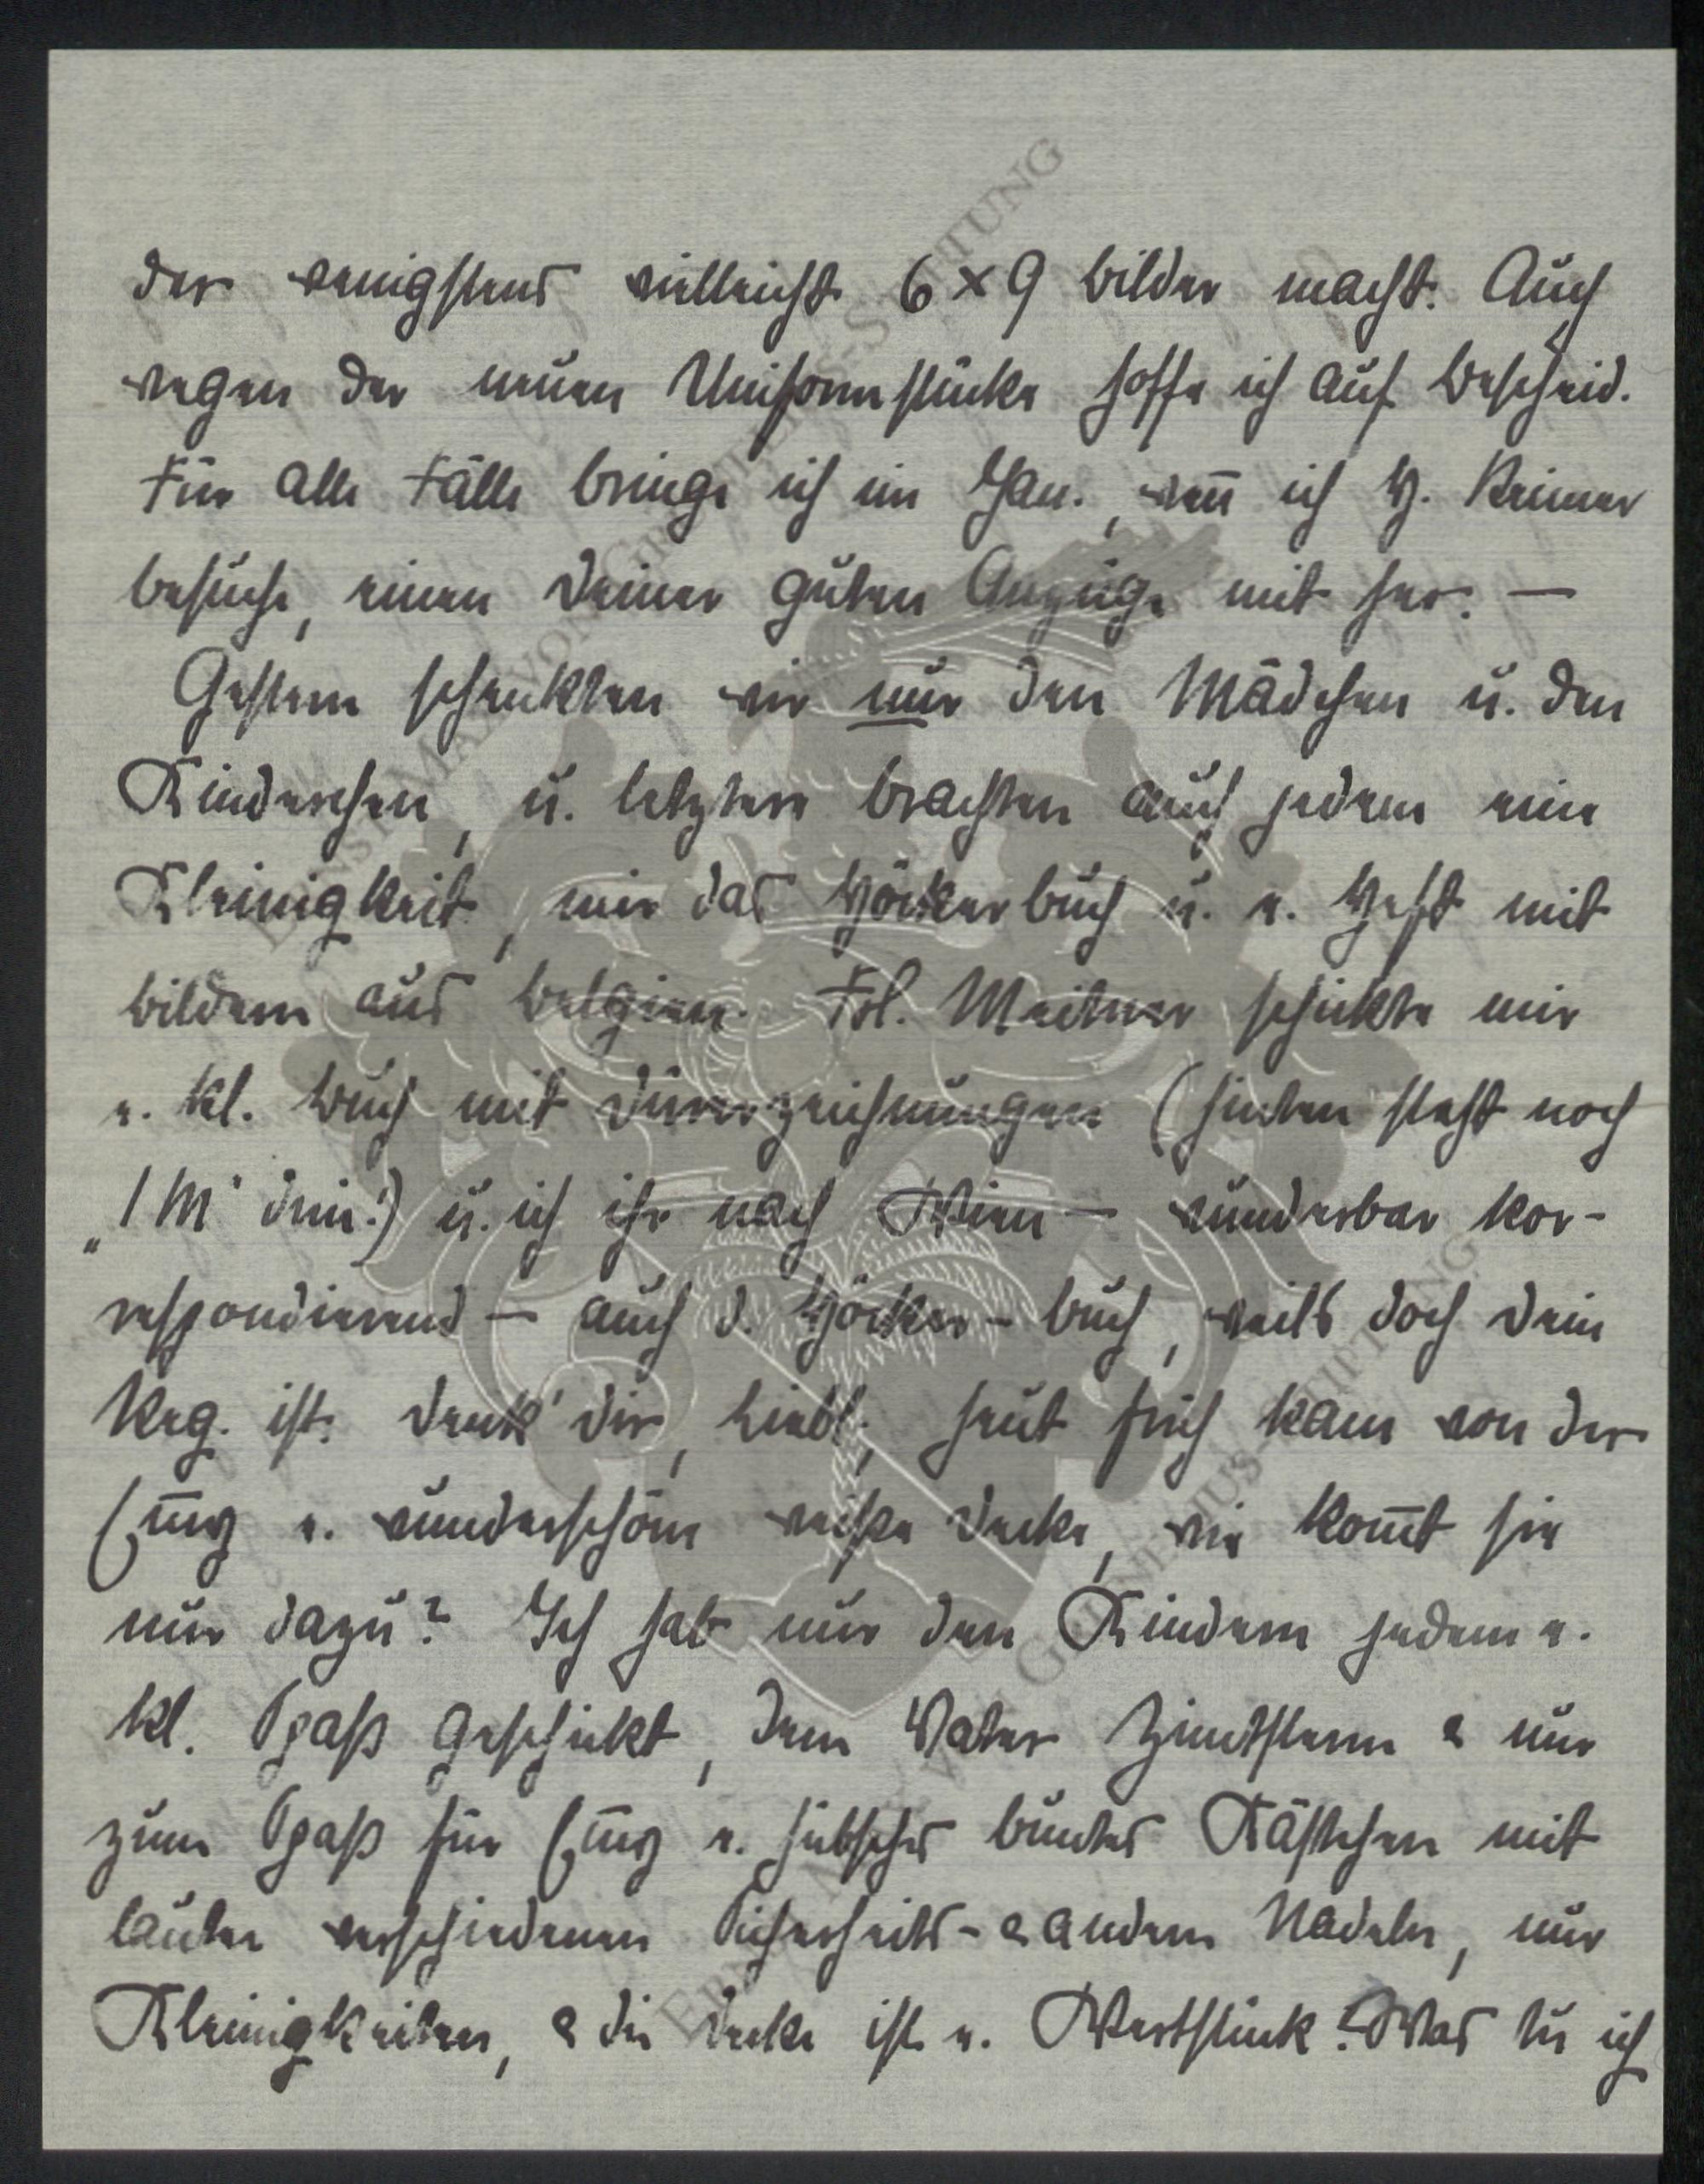 der wenigstens vielleicht 6 x 9 Bilder macht. Auch
wegen der neuen Uniformstücke hoffe ich auf Bescheid.
Für alle Fälle bringe ich im Jan., weñ ich H. Reimer
besuche, einen Deiner guten Anzüge mit her. —
Gestern schenkten wir nur den Mädchen u. den
Kinderchen, u. letztere brachten auch jedem eine
Kleinigkeit, mir das Höckerbuch u. e. Heft mit
Bildern aus Belgien. Frl. Meitner schickte mir
e. kl. Buch mit Dürerzeichnungen (hinten steht noch
„1 M" drin!) u. ich ihr nach Wien — wunderbar kor-
respondierend — auch d. Höcker-Buch, weils doch Dein
Reg. ist. Denk' Dir, Liebl., heut früh kam von der
e. wunderschöne weiße Decke, wie kom̄t sie
nur dazu? Ich hab nur den Kindern jedem e.
kl. Spaß geschickt, dem Vater Zimtsterne & nur
zum Spaß für e. hübsches buntes Kästchen mit
lauter verschiedenen Sicherheits- & andern Nadeln, nur
Kleinigkeiten, & die Decke ist e. Wertstück! Was tu ich
ERNST-MAX VON GRUNELIUS-STIFTUNG
ERNST MAX VON GRUNELIUS-STIFTUNG